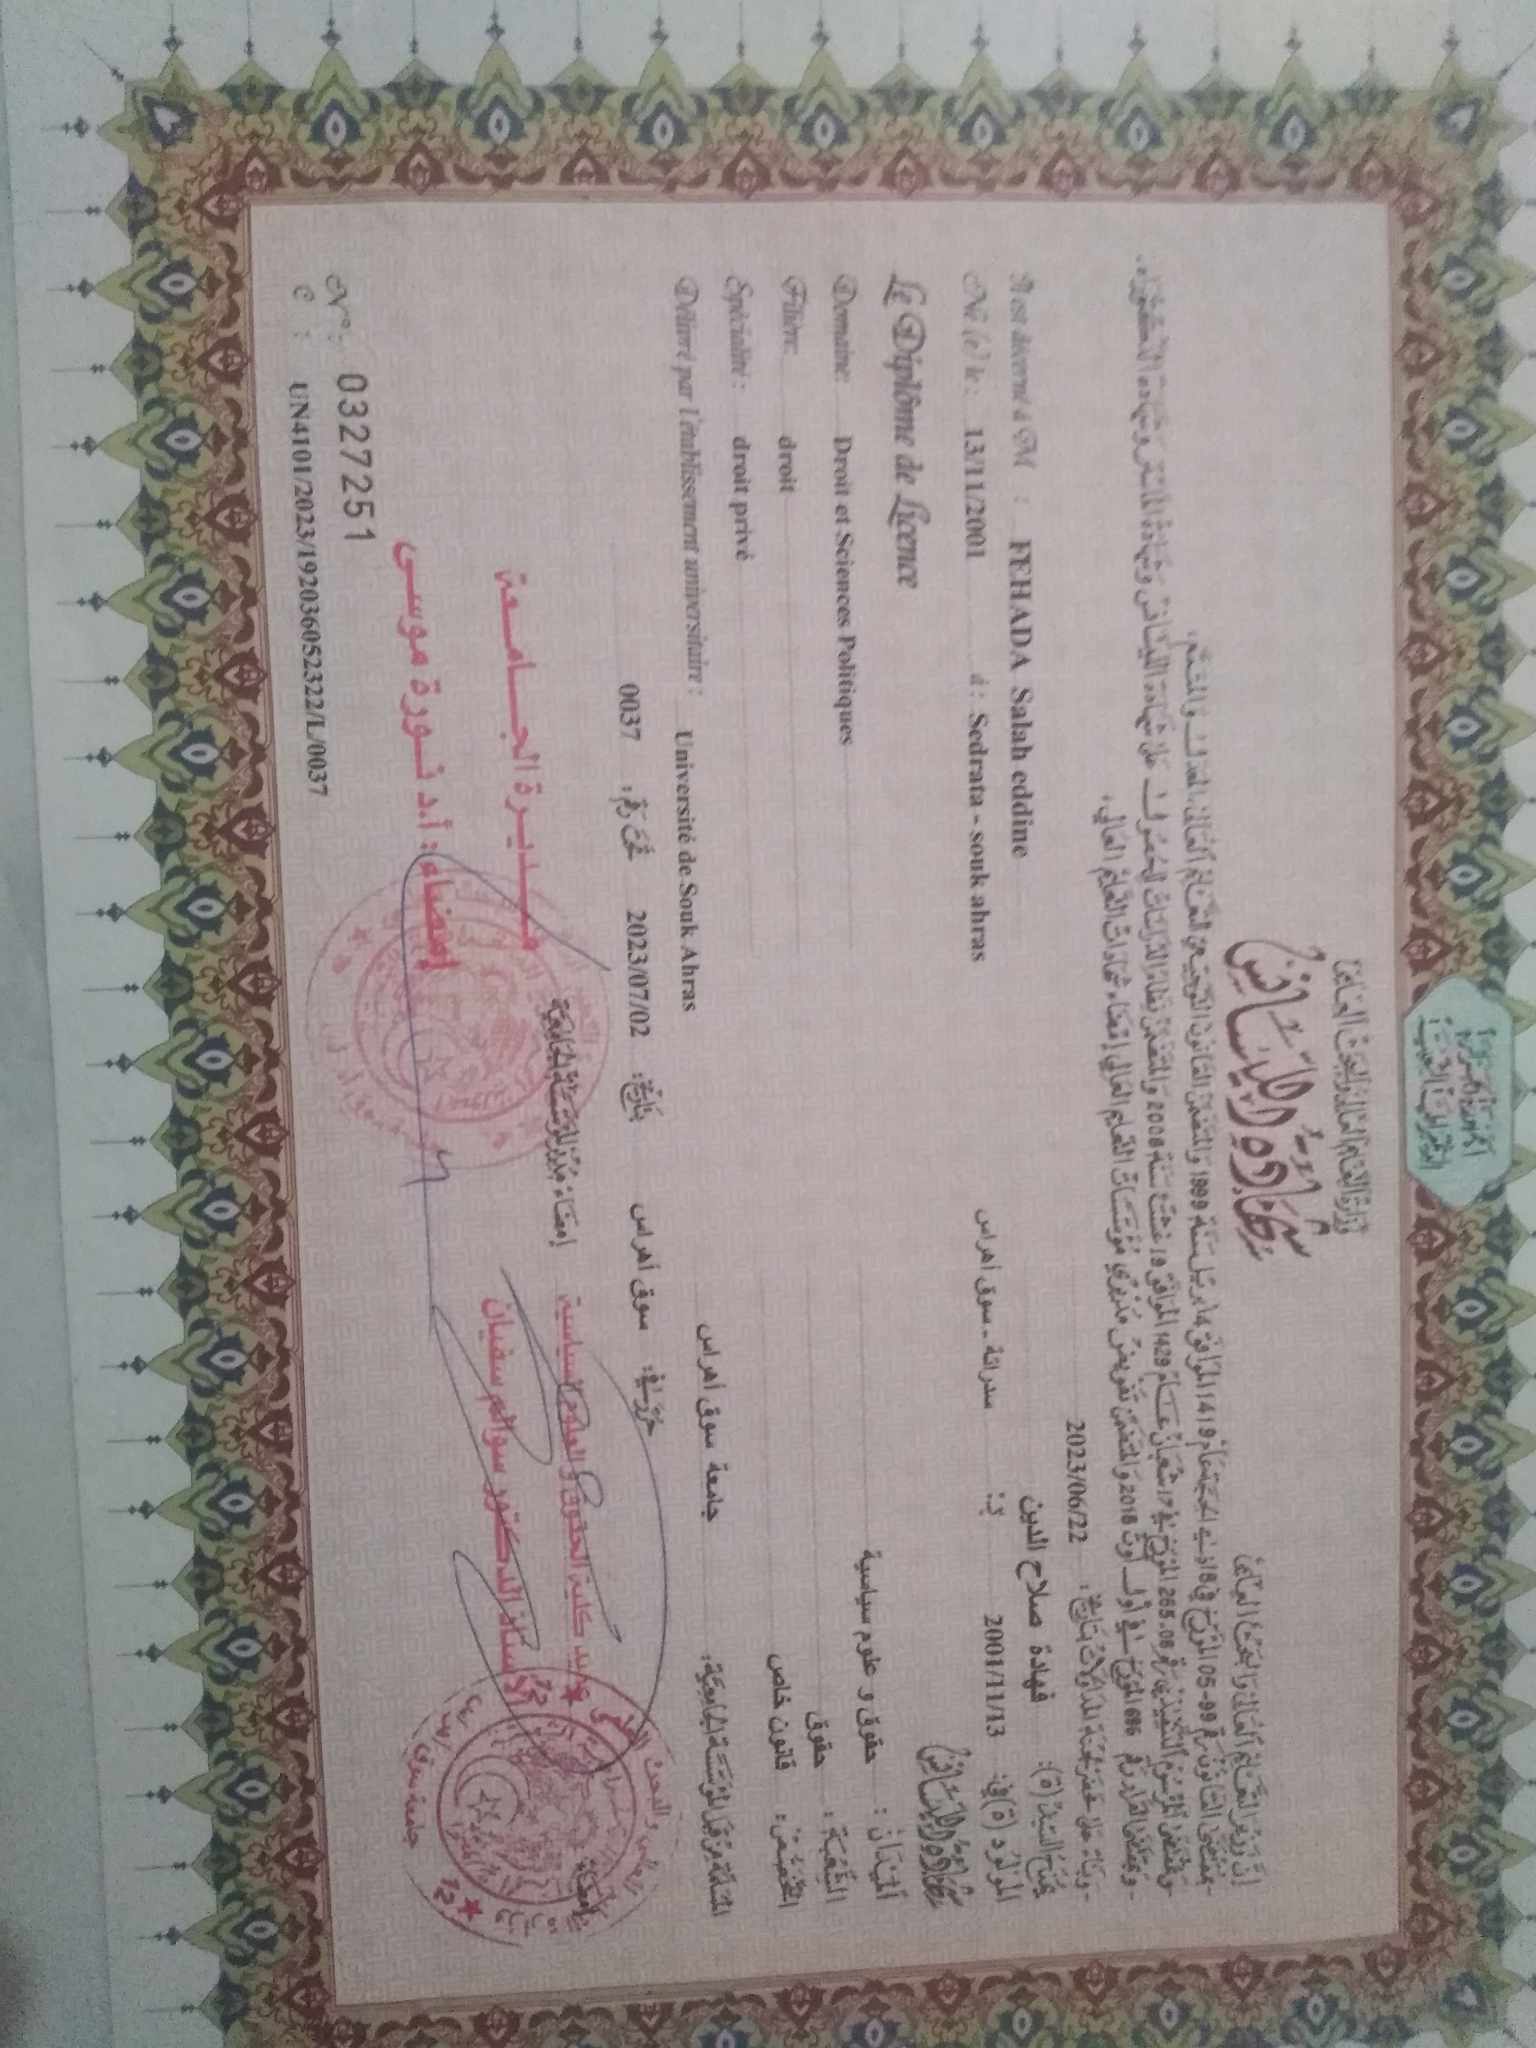 الجمهورية الجزائرية
الديمقراطية الشعبية
وزارة التعليم العالي والبحث العلمي
شهادة الليسانس
إن وزير التعليم العالي والبحث العلمي
- بمقتضى القانون رقم 99-05 المؤرخ في 18 ذي الحجة عام 1419 الموافق 4 أبريل سنة 1999 والمتضمن القانون التوجيهي للتعليم العالي، المعدل والمتمم،
- وبمقتضى المرسوم التنفيذي رقم 08-265 المؤرخ في 17 شعبان عام 1429 الموافق 19 غشت سنة 2008 والمتضمن نظام الدراسات للحصول على شهادة الليسانس وشهادة الماستر وشهادة الدكتوراه،
- وبمقتضى القرار رقم 686 المؤرخ في أول أوت 2018 والمتضمن تفويض مديري مؤسسات التعليم العالي إمضاء شهادات التعليم العالي،
- وبناء على محضر لجنة المداولات بتاريخ : 2023/06/22
يمنح السيد (ة): فهادة صلاح الدين
Il est décerné à M : FEHADA Salah eddine
المولود (ة) في: 2001/11/13 بـ: سدراتة - سوق أهراس
Né (e) le : 13/11/2001 à : Sedrata - souk ahras
شهادة الليسانس
Le Diplôme de Licence
الميدان : حقوق و علوم سياسية
Domaine: Droit et Sciences Politiques
الشعبة : حقوق
Filière: droit
التخصص : قانون خاص
Spécialité : droit privé
المسلمة من قبل المؤسسة الجامعية: جامعة سوق أهراس
Délivré par l'établissement universitaire : Université de Souk Ahras
حرر في: سوق أهراس بتاريخ: 2023/07/02 تحت رقم : 0037
إمضاء مدير المؤسسة الجامعية
عميد كلية الحقوق و العلوم السياسية
الأستاذ الدكتور سوالم سفيان
مـديـرة الجـامـعة
إمضاء : أ.د نـورة موسـى
جامعة سوق أهراس
N° : 0327251
C : UN4101/2023/192036052322/L/0037